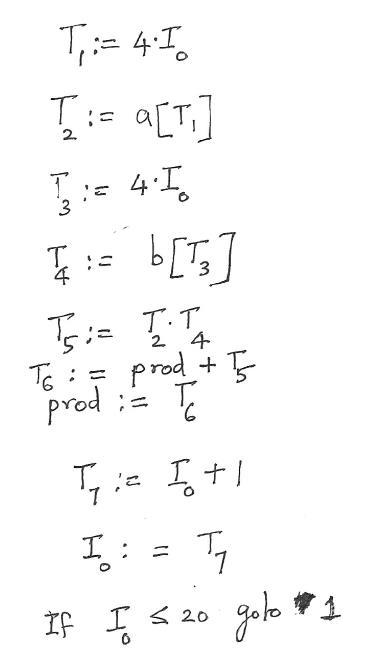 T₁ := 4·I₀
T₂ := a[T₁]
T₃ := 4·I₀
T₄ := b[T₃]
T₅ := T₂·T₄
T₆ := prod + T₅
prod := T₆
T₇ := I₀ + 1
I₀ := T₇
If I₀ ≤ 20 goto 1